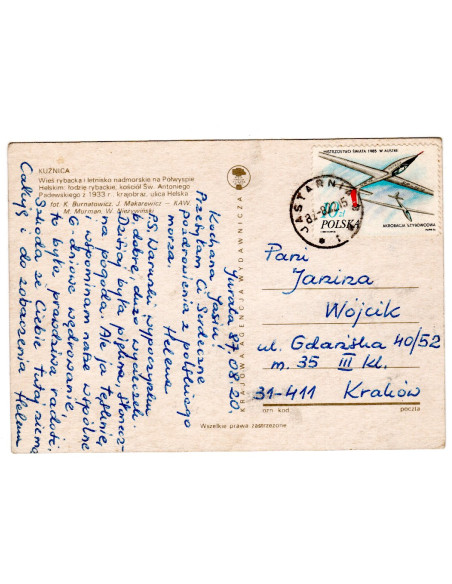 KUŹNICA
Wieś rybacka i letnisko nadmorskie na Półwyspie
Helskim: łodzie rybackie, kościół Św. Antoniego
Padewskiego z 1933 r., krajobraz, ulica Helska
fot. K. Burnatowicz, J. Makarewicz - KAW,
M. Murman, W. Nieżywiński
Jurata 87.08.20.
Kochana Jasiu!
Przesyłam Ci Serdeczne
pozdrowienia z polskiego
morza. Helena
PS. Warunki wypoczynku
dobre, dużo wycieczek.
Dzisiaj była piękna, słonecz-
na pogoda. Ale ja tęsknię,
i wspominam nasze wspólne
6-dniowe wędrowanie,
to była prawdziwa radość,
Szkoda że Ciebie tutaj nie ma
Całuję i do zobaczenia Helena
KRAJOWA AGENCJA WYDAWNICZA
MISTRZOSTWO ŚWIATA 1985 W AUSTRII
POLSKA
AKROBACJA SZYBOWCOWA
JASTARNIA
Pani
Janina
Wójcik
ul. Gdańska 40/52
m. 35 III kl.
31-411 Kraków
ozn. kod. poczta
Wszelkie prawa zastrzeżone